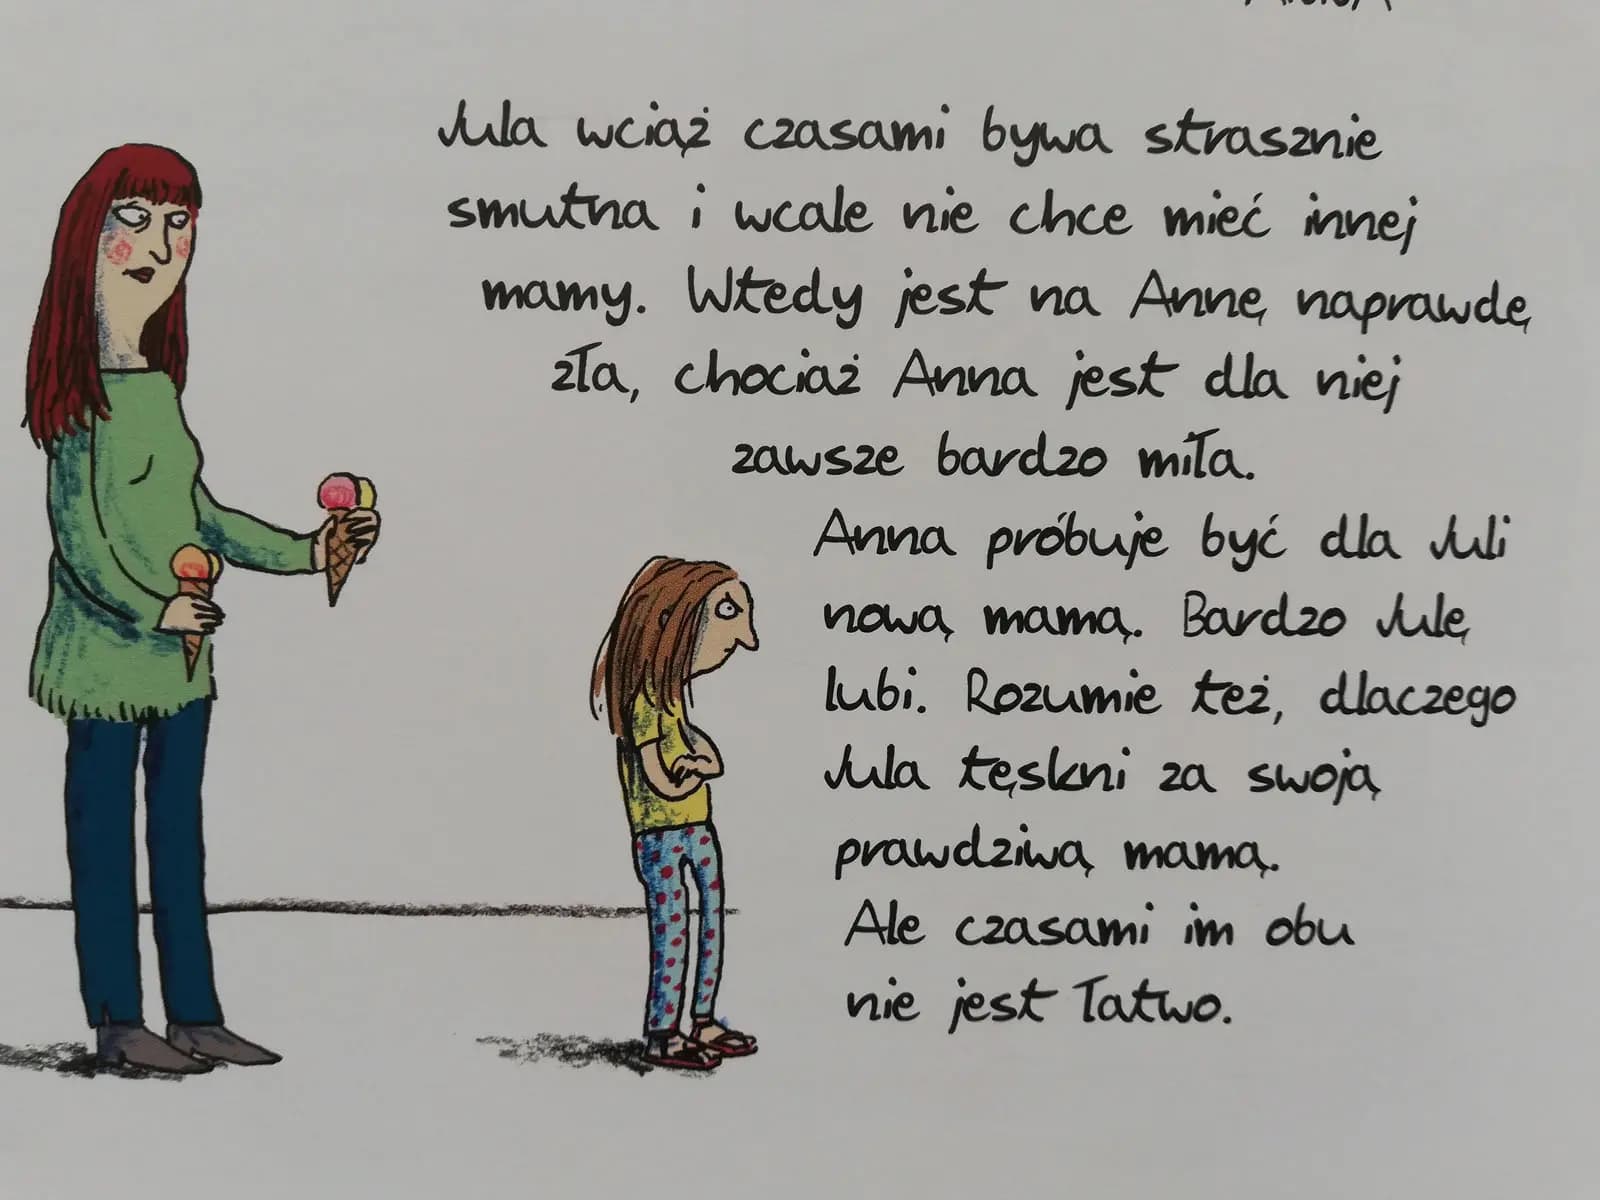 Jula wciąż czasami bywa strasznie
smutna i wcale nie chce mieć innej
mamy. Wtedy jest na Annę naprawdę
zła, chociaż Anna jest dla niej
zawsze bardzo miła.
Anna próbuje być dla Juli
nową mamą. Bardzo Julę
lubi. Rozumie też, dlaczego
Jula tęskni za swoją
prawdziwą mamą.
Ale czasami im obu
nie jest łatwo.